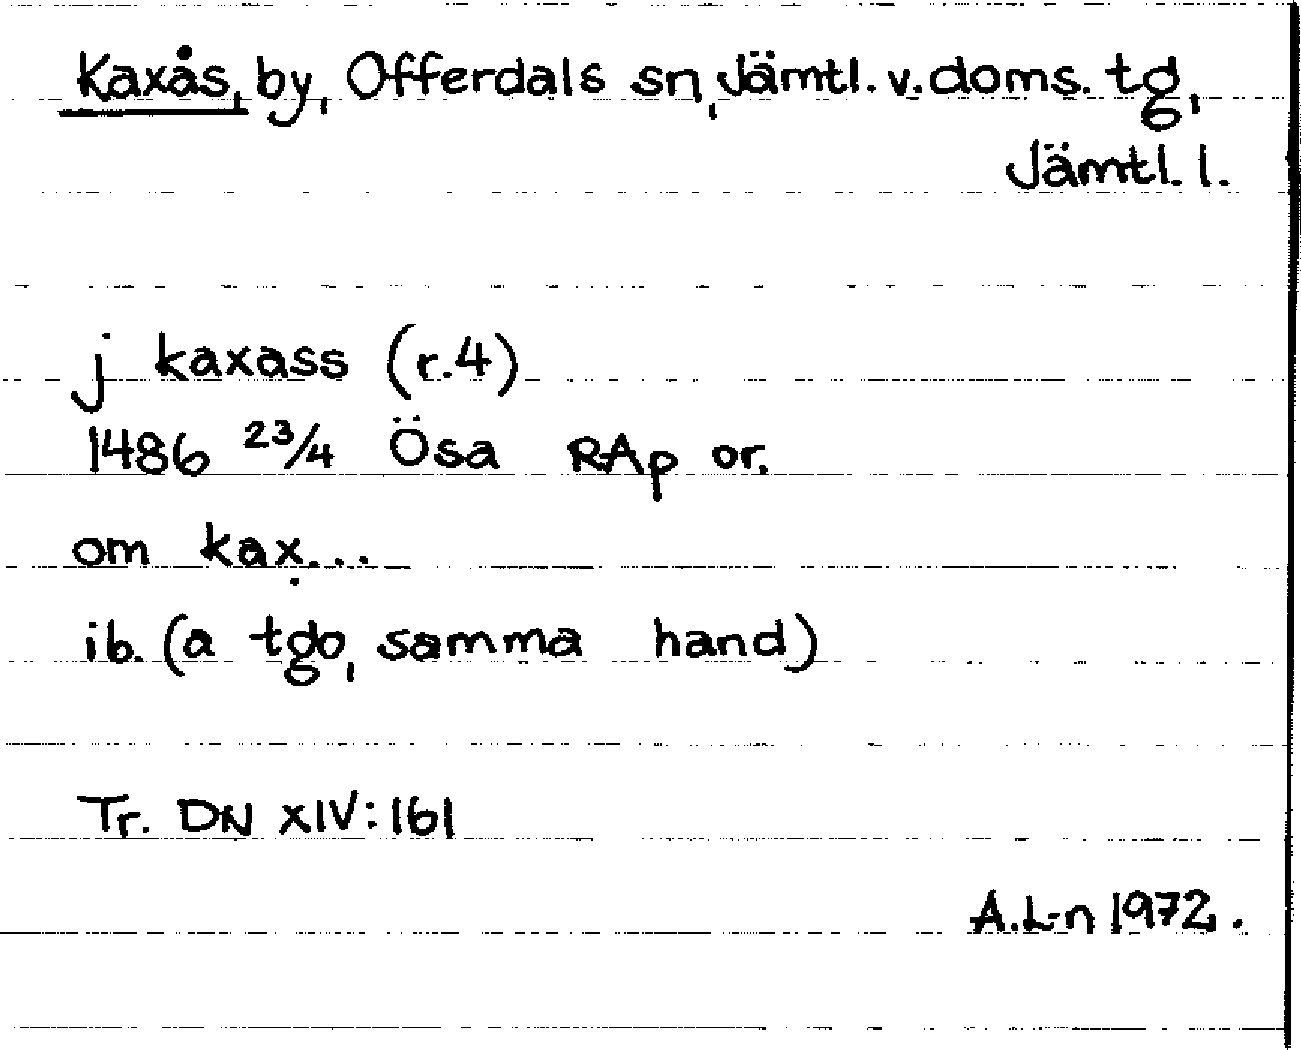 Kaxås, by, Offerdals sn, Jämtl. v. doms. tg,
Jämtl. l.
j kaxass (r.4)
1486 23/4 Ösa RAp or.
om kax̣...
ib. (a tgo, samma hand)
Tr. DN XIV:161
A.L-n 1972.